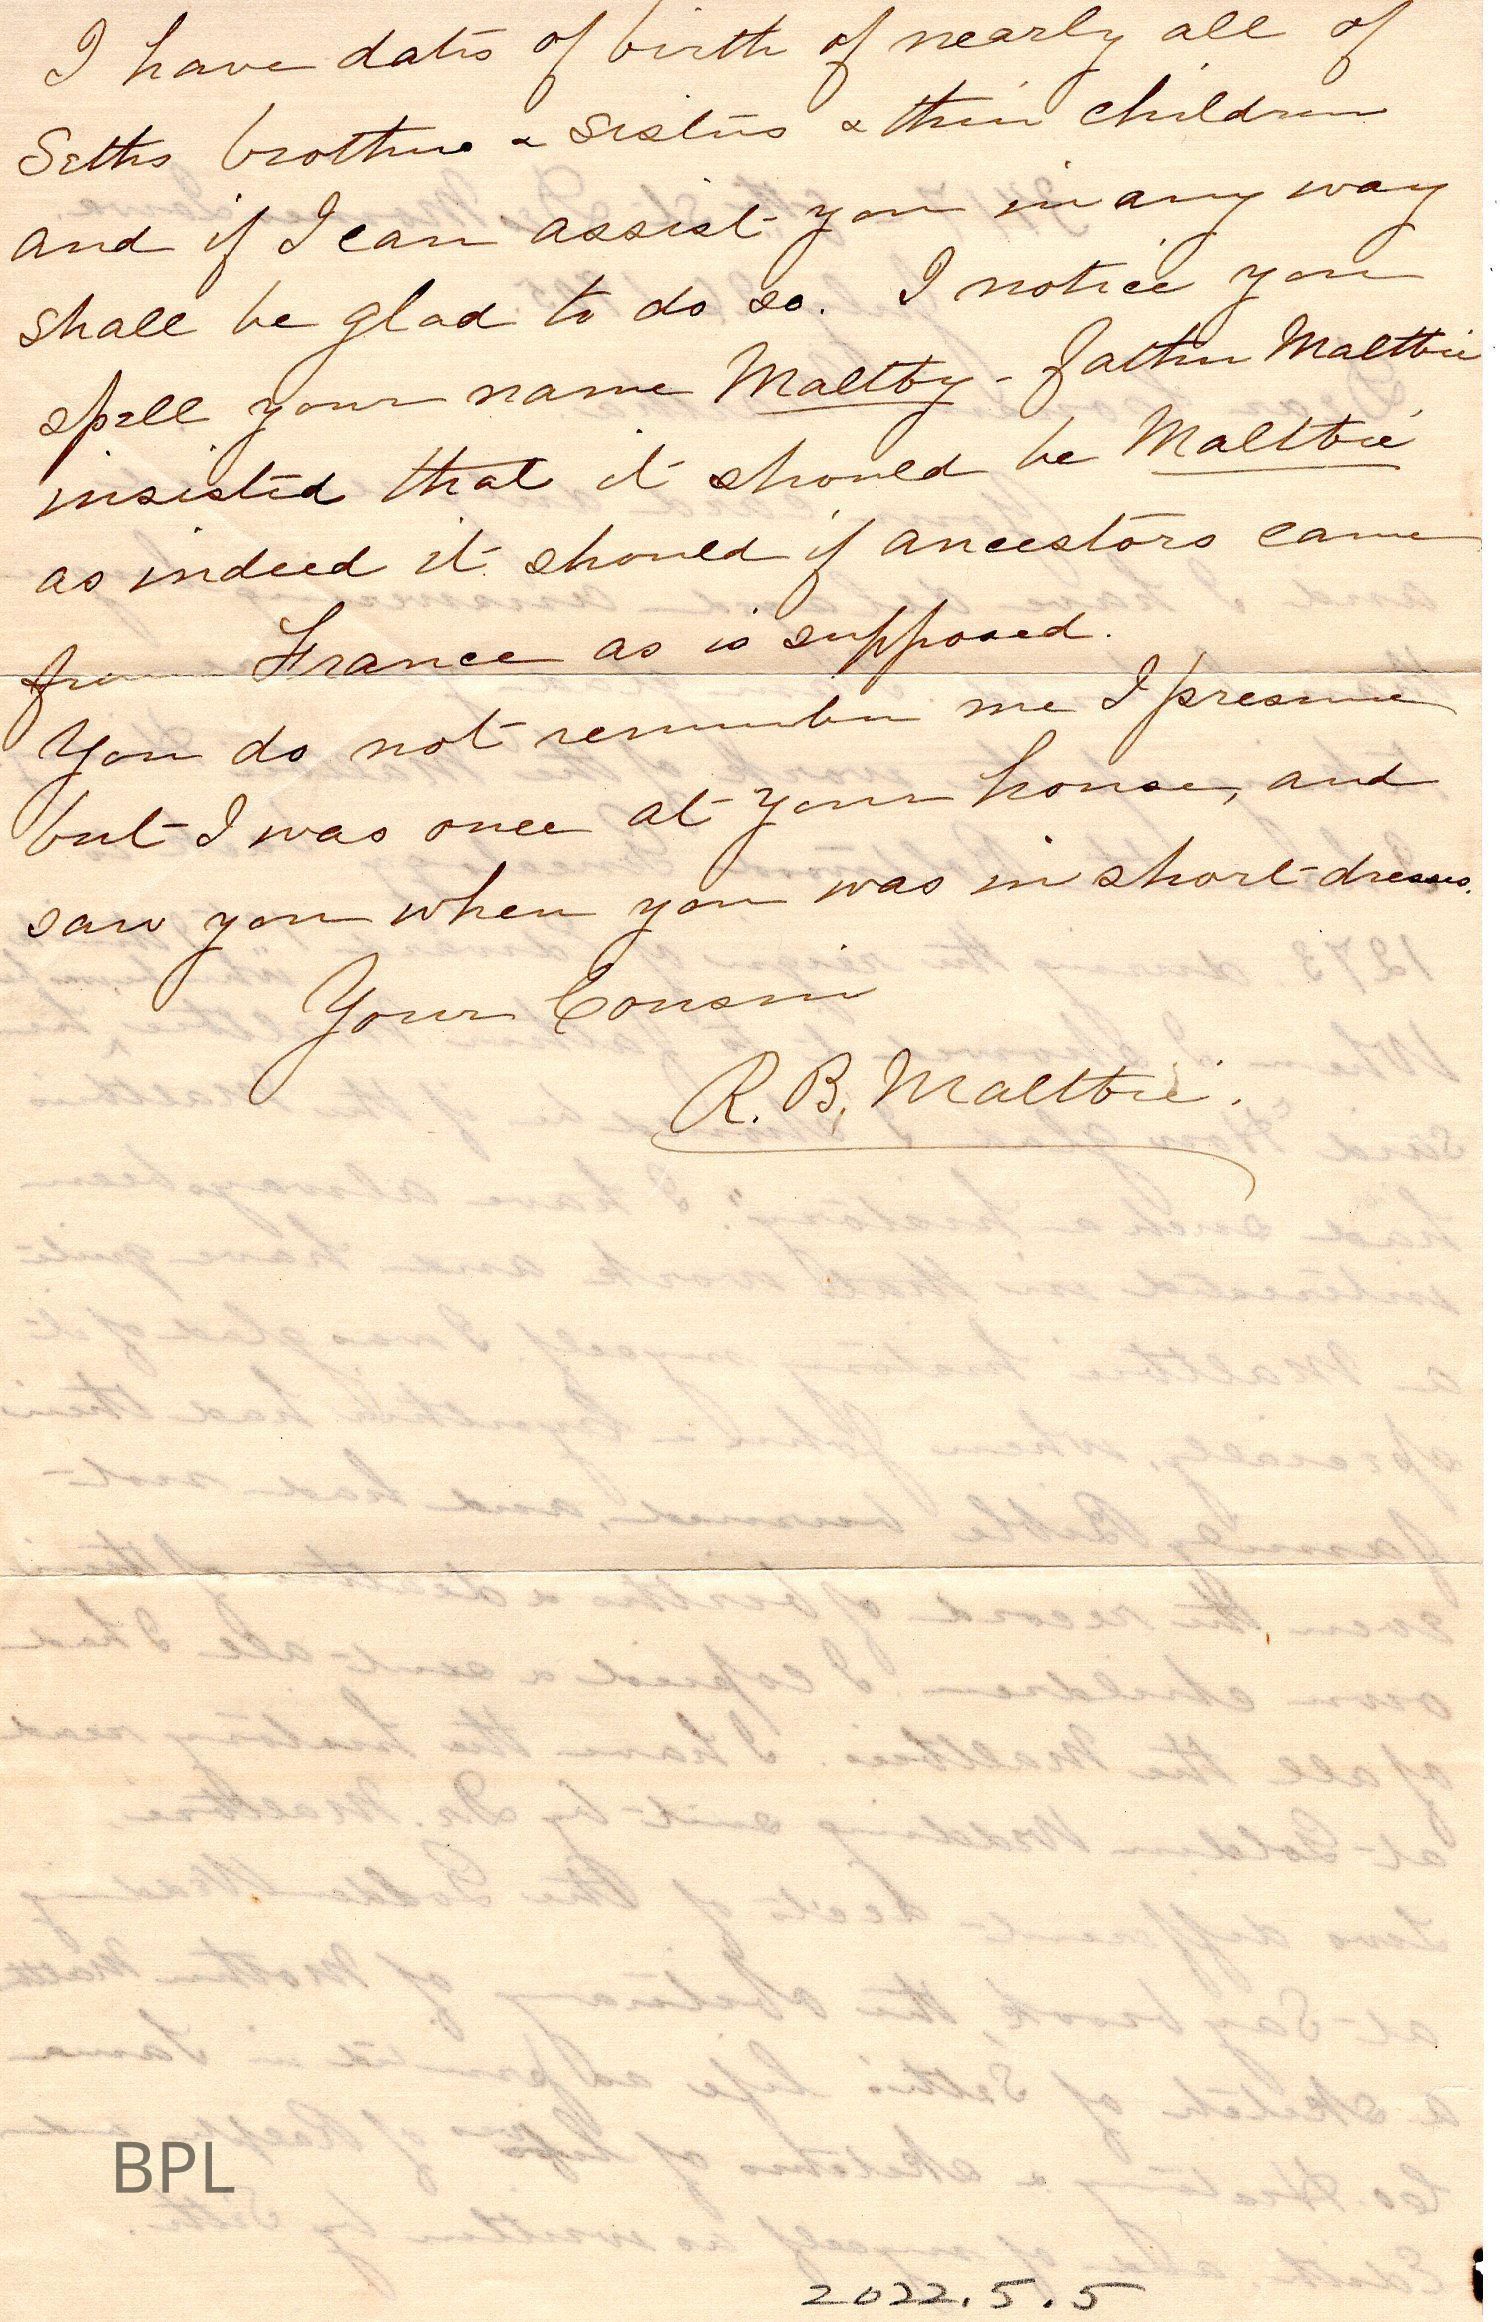 I have dates of birth of nearly all of
Seths brothers & sisters & their children
and if I can assist you in any way
shall be glad to do so. I notice you
spell your name Maltby - father Maltbie
insisted that it should be Maltbie
as indeed it should if ancestors came
from France as is supposed.
You do not remember me I presume
but I was once at your house, and
saw you when you was in short dresses.
Your Cousin
R. B. Maltbie.
BPL
2022.5.5